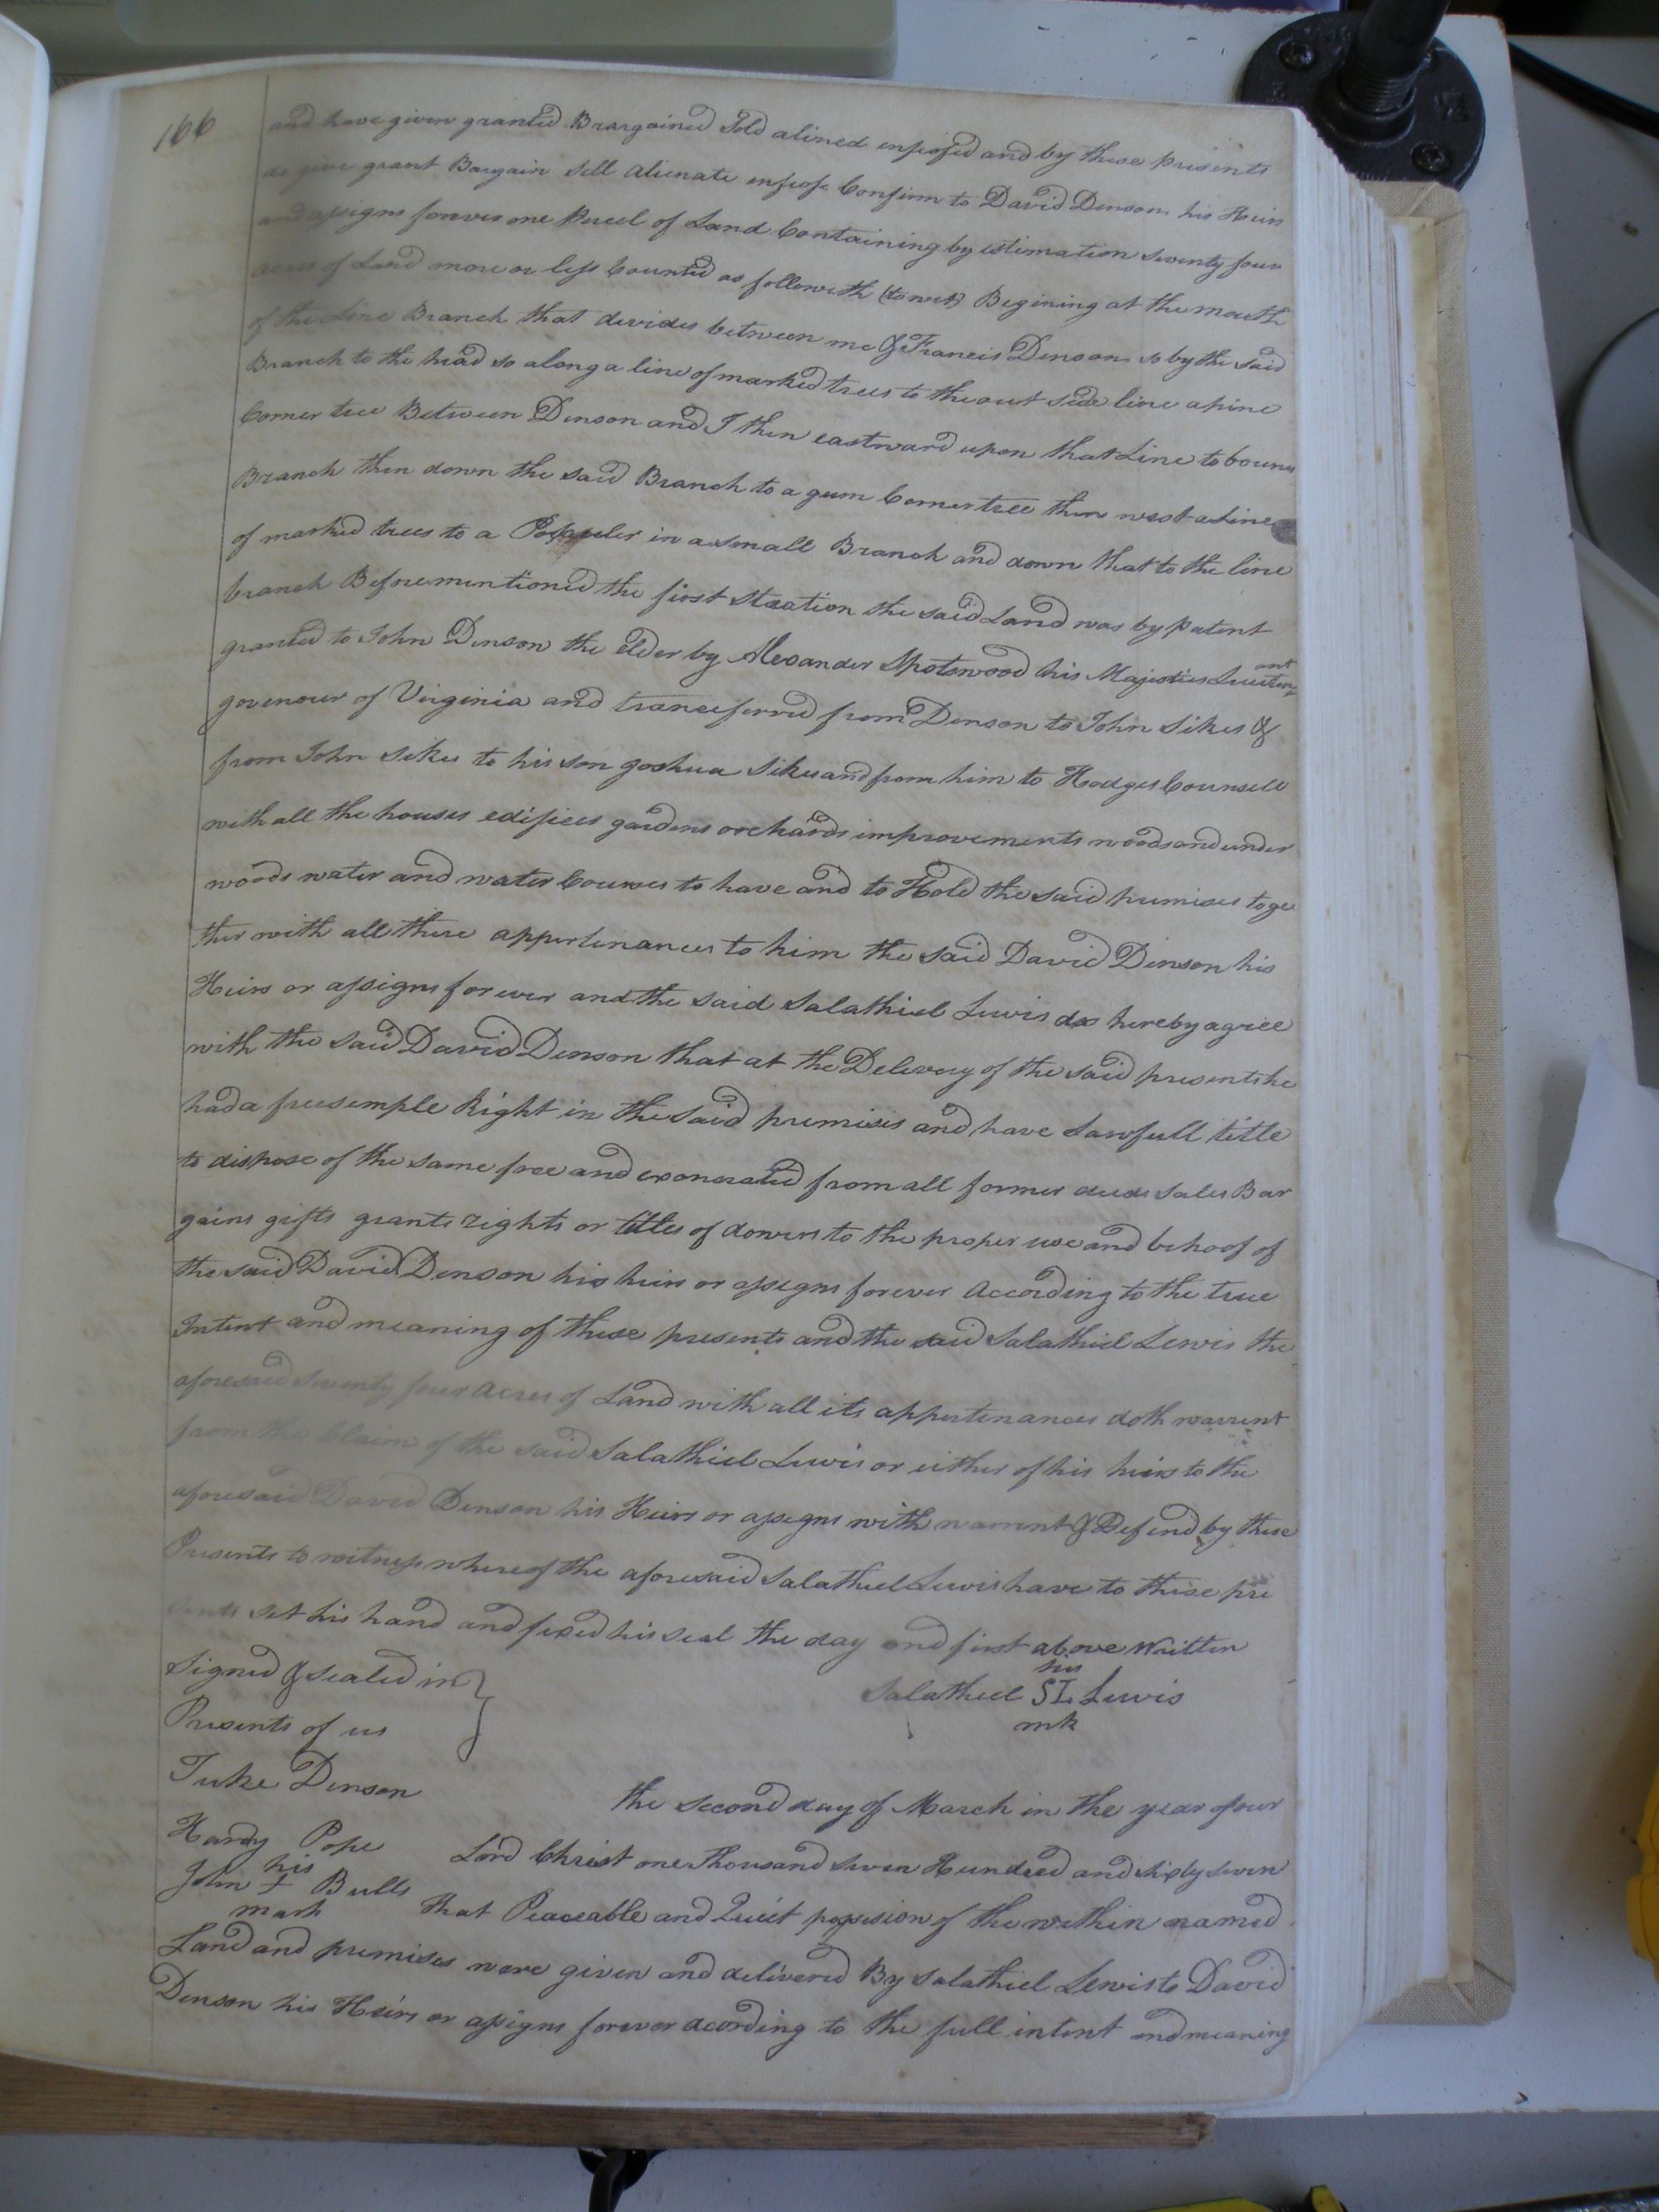 166
and have given granted Brargained Sold alined enfeofed and by these presents
do give grant Bargain sell alienate enfeofe Confirm to David Denson his Heirs
and assigns forever one Parcel of Land Containing by estimation seventy four
acres of Land more or less bounted as followeth (to wit) Begining at the mouth
of the Line Branch that devides between me & Francis Denson so by the said
Branch to the head so along a line of marked trees to the out side line a pine
Corner tree Between Denson and I then eastward upon that Line to
Branch then down the said Branch to a gum Corner tree then west a Line
of marked trees to a in a small Branch and down that to the line
branch Beforementioned the first Staation the said Land was by patent
granted to John Denson the elder by Alexander Spotswood his Majesties Lieutenant
govenour of Virginia and tranceferred from Denson to John Sikes &
from John Sikes to his son Joshua Sikes and from him to Hodges Counsell
with all the houses edifices gardens orchards improvements woods and under
woods water and water Courses to have and to Hold the said premises toge
ther with all there appertinances to him the said David Denson his
Heirs or assigns for ever and the said Salathiel Lewis do hereby agree
with the said David Denson that at the Delevery of the said presents he
had a freesemple Right in the said premises and have Lawfull title
to dispose of the same free and exonerated from all former deeds Sales Bar
gains gifts grants rights or titles of dowers to the proper use and behoof of
the said David Denson his heirs or assegns forever According to the true
Intent and meaning of these presents and the said Salathiel Lewis the
aforesaid seventy four acres of Land with all its appertenances doth warrent
from the Claim of the said Salathiel Lewis or either of his heirs to the
aforesaid David Denson his Heirs or assegns with warrent & Defend by these
Presents to witness whereof the aforesaid Salathiel Lewis have to these pre
sents set his hand and fixed his seal the day and first above written
Signed & sealed in
Presents of us
his
Salathiel SL Lewis
mk
Juke Denson
the second day of March in the year of our
Hardy Pope
Lord Christ one thousand seven Hundred and sixty seven
his
John I Bulls
mark
that Peaceable and Quiet possesion of the within named
Land and premises were given and delivered By Salathiel Lewis to David
Denson his Heirs or assigns forever acording to the full intent and meaning